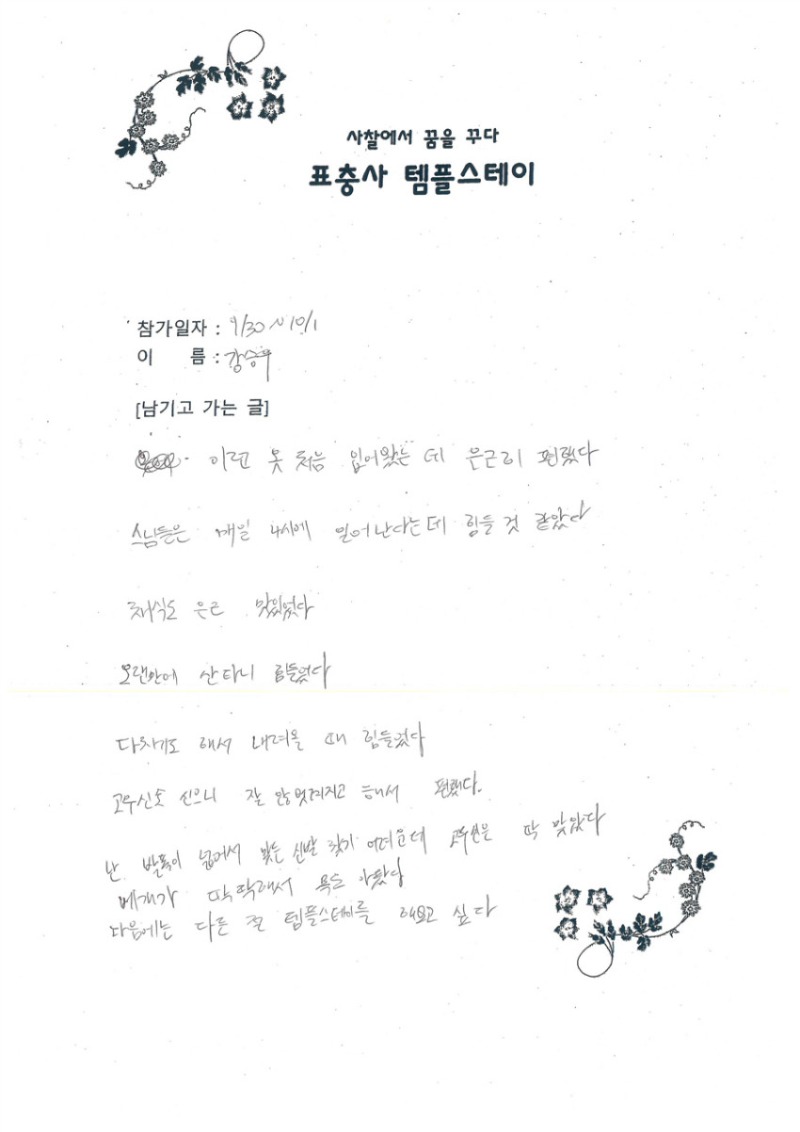 사찰에서 꿈을 꾸다
표충사 템플스테이
참가일자 : 9/30 ~ 10/1
이 름 : 강승우
[남기고 가는 글]
이런 옷 처음 입어왔는 데 은근히 편했다
스님들은 매일 4시에 일어난다는데 힘들 것 같았다
채식도 은근 맛있었다
오랜만에 산타니 힘들었다
다치기도 해서 내려올 때 힘들었다
고무신도 신으니 잘 안 벗겨지고 해서 편했다.
난 발폭이 넓어서 맞는 신발 찾기 어려운데 고무신은 딱 맞았다
베개가 딱딱해서 목도 아팠당
다음에는 다른 절 템플스테이를 해보고 싶다